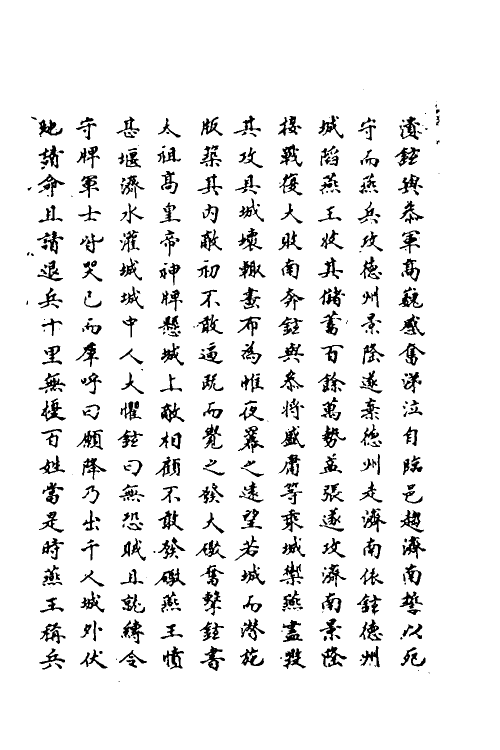 潰鉉與叅軍高巍感奮涕泣自臨邑趨濟南誓以死
守而燕兵攻德州景隆遂棄德州走濟南依鉉德州
城陷燕王收其儲蓄百餘萬勢益張遂攻濟南景隆
接戰復大敗南奔鉉與叅將盛庸等乘城禦燕盡毀
其攻具城壞輙畫布為帷夜羃之遠望若城而潛施
版築其內敵初不敢逼旣而覺之發大礮奮擊鉉書
太祖高皇帝神牌懸城上敵相顧不敢發礮燕王憤
甚堰濟水灌城城中人大懼鉉曰無恐賊且就縛令
守陴軍士皆哭已而羣呼曰願降乃出千人城外伏
地請命且請退兵十里無擾百姓當是時燕王稱兵